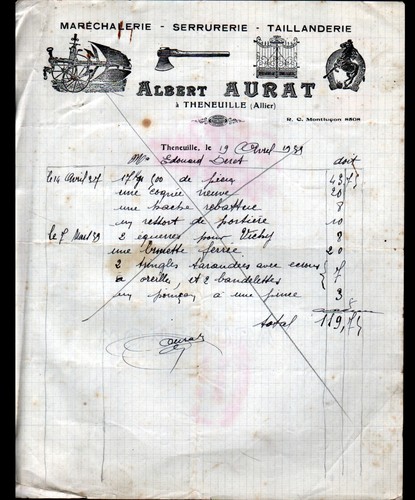 MARÉCHALERIE - SERRURERIE - TAILLANDERIE
ALBERT AURAT
à THENEUILLE (Allier)
R. C. Montluçon 8808
Theneuille, le 19 Avril 1939
Mr Edouard doit
le 14 Avril 37 de 43,75
une cognée neuve 20
une hache rebattue 8
un ressort de portière 10
le 7 Mars 39 2 équerres pour Vichy 8
une brouette ferrée 20
2 tringles taraudées avec écrous
à oreilles, et 2 bandelettes 7
un poinçon à une pince 3
total 119,75
Aurat